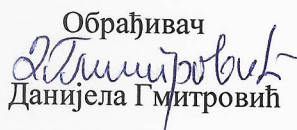 Обрађивач
Д. Гмитровић
Данијела Гмитровић